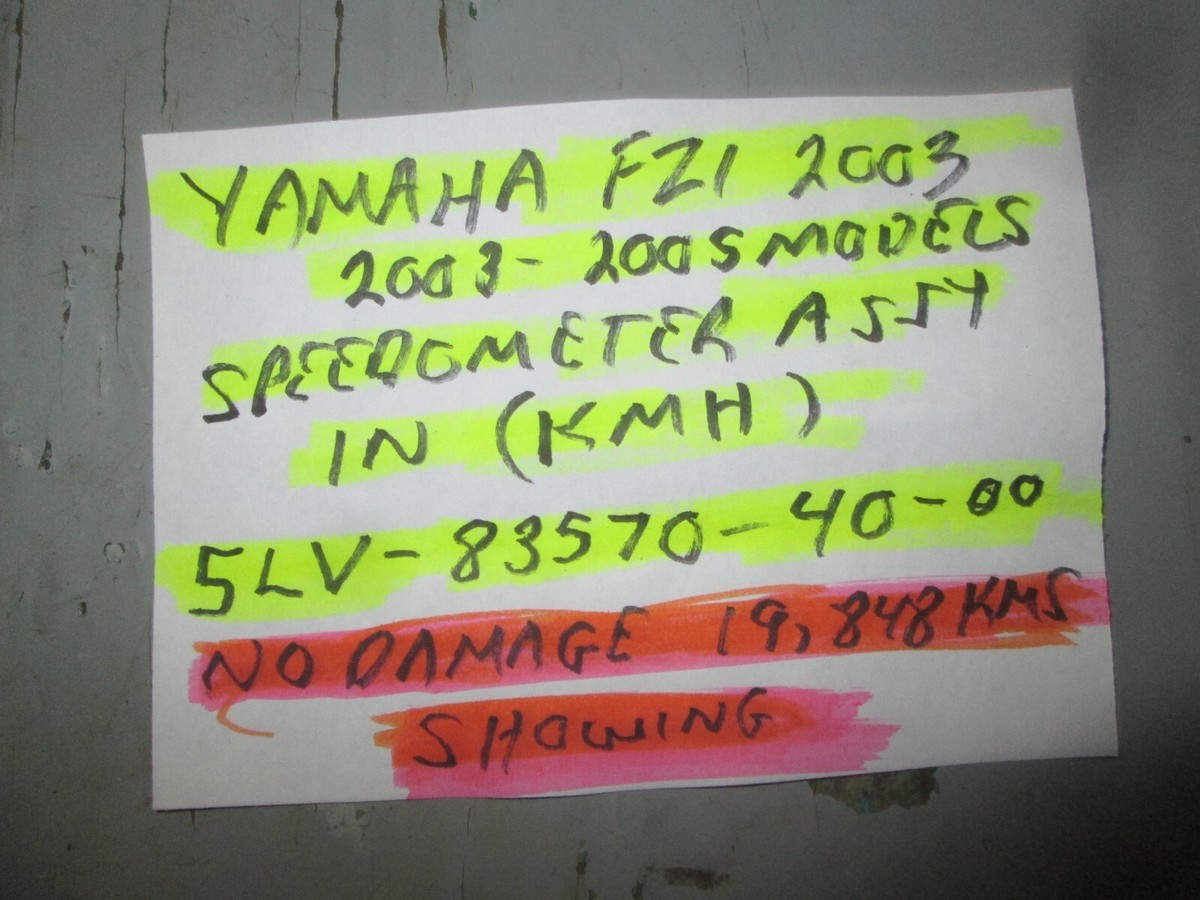 YAMAHA FZ1 2003
2003- 2005 MODELS
SPEEDOMETER ASSY
IN (KMH)
5LV-83570-40-00
NO DAMAGE 19,848 KMS
SHOWING